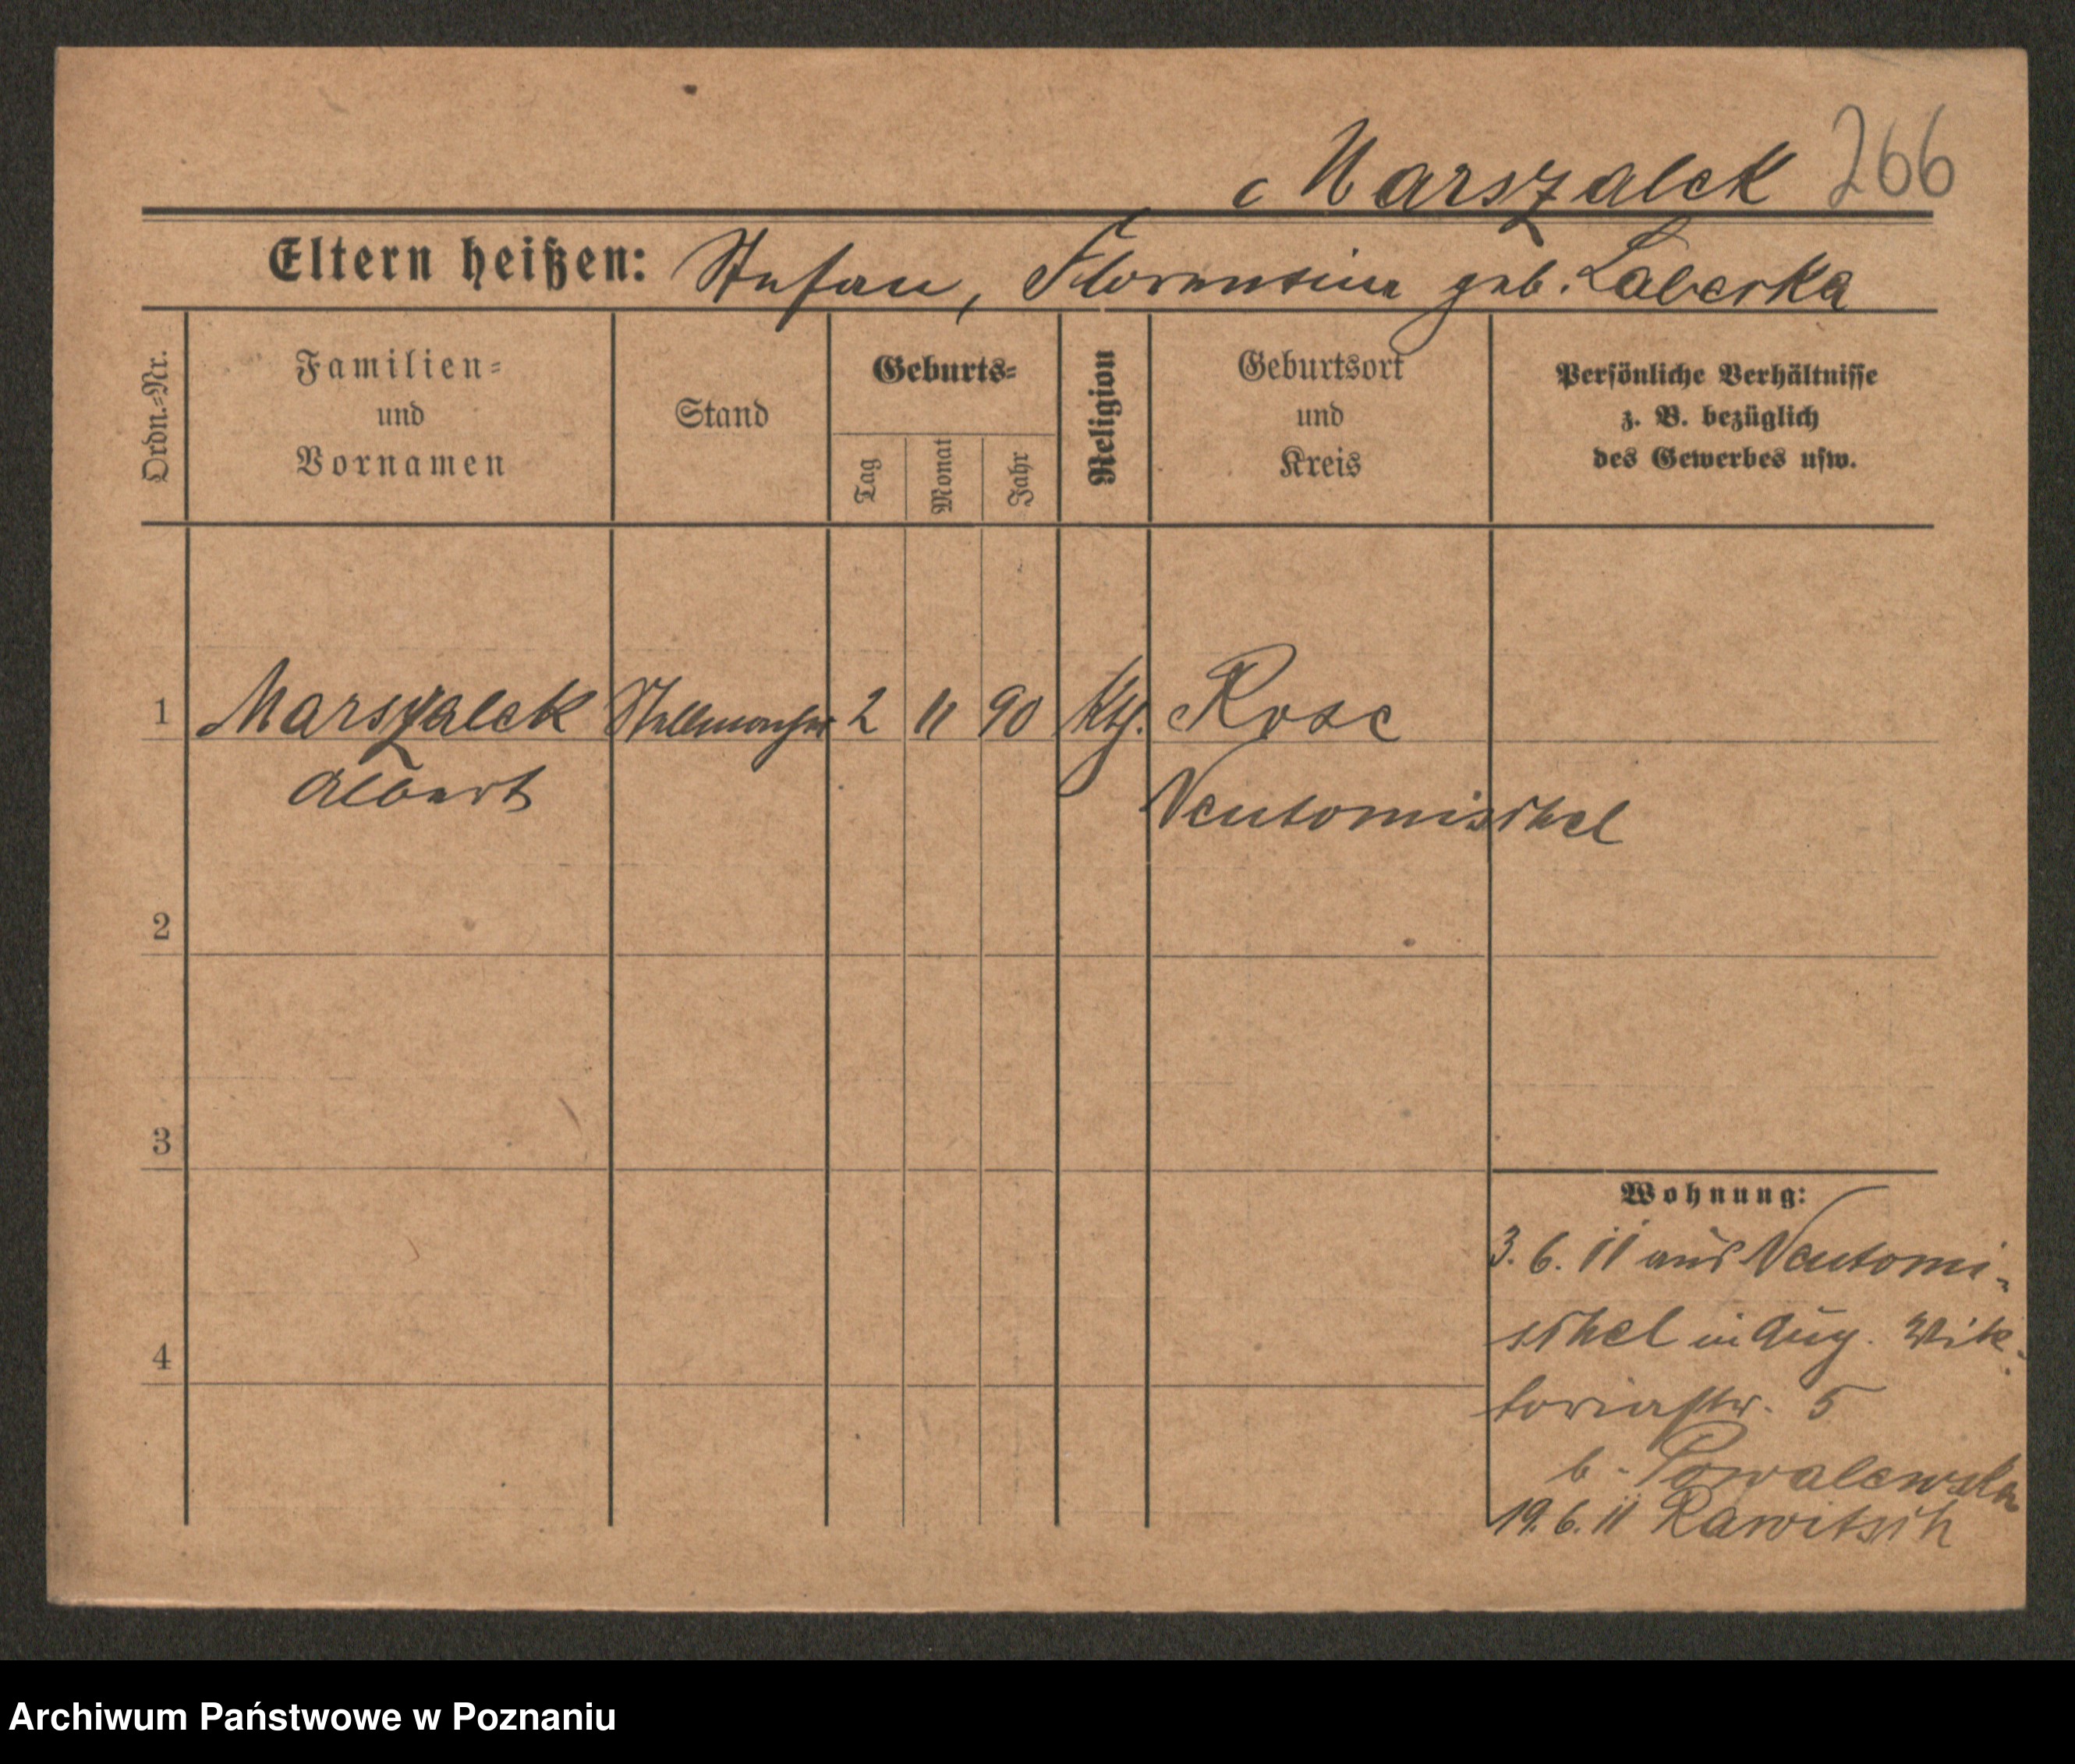 Marszalek 266
Eltern heißen: Stefan, Florentine geb. Laberka
Ordn.-Nr.
Familien-
und
Vornamen
Stand
Geburts-
Tag
Monat
Jahr
Religion
Geburtsort
und
Kreis
Persönliche Verhältnisse
z. B. bezüglich
des Gewerbes usw.
1 Marszalek Stellmacher 2 11 90 kth. Rose
Albert Neutomischel
2
3
4
Wohnung:
3. 6. 11 aus Neutomi-
schel in Aug. Vik-
toriastr. 5
b. Powalewska
19. 6. 11 Rawitsch
Archiwum Państwowe w Poznaniu